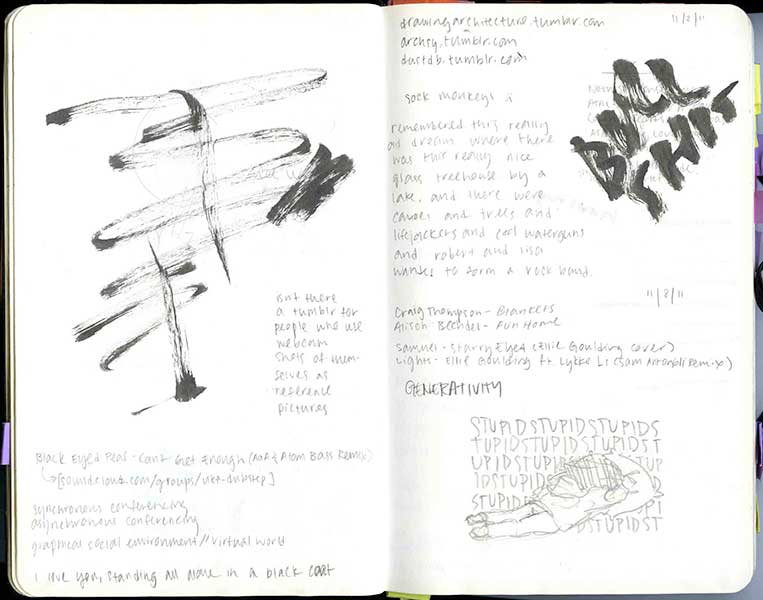 isnt there
a tumblr for
people who use
webcam
shots of them-
selves as
reference
pictures
Black Eyed Peas - Cant Get Enough ( & Atom Bass Remix)
[soundcloud.com/groups/ukf-dubstep]
synchronous conferencing
asynchronous conferencing
graphical social environment // virtual world
I love you, standing all alone in a black coat
drawingarchitecture.tumblr.com
11/2/11
archsy.tumblr.com
dustdb.tumblr.com
sock monkeys
BULL
SHIT
remembered this really
old dream where there
was this really nice
glass treehouse by a
lake, and there were
canoes and trees and
lifejackets and cool waterguns
and robert and lisa
wanted to form a rock band.
11/8/11
Craig Thompson - Blankets
Alison Bechdel - Fun Home
Samuel - Starry Eyed (Ellie Goulding cover)
Lights - Ellie Goulding ft Lykke Li (Sam Remix)
GENERATIVITY
STUPIDSTUPIDSTUPIDS
TUPIDSTUPIDSTUPIDST
UPIDSTUPIDS UP
IDSTUPID
STUPIDS
DSTUPIDST